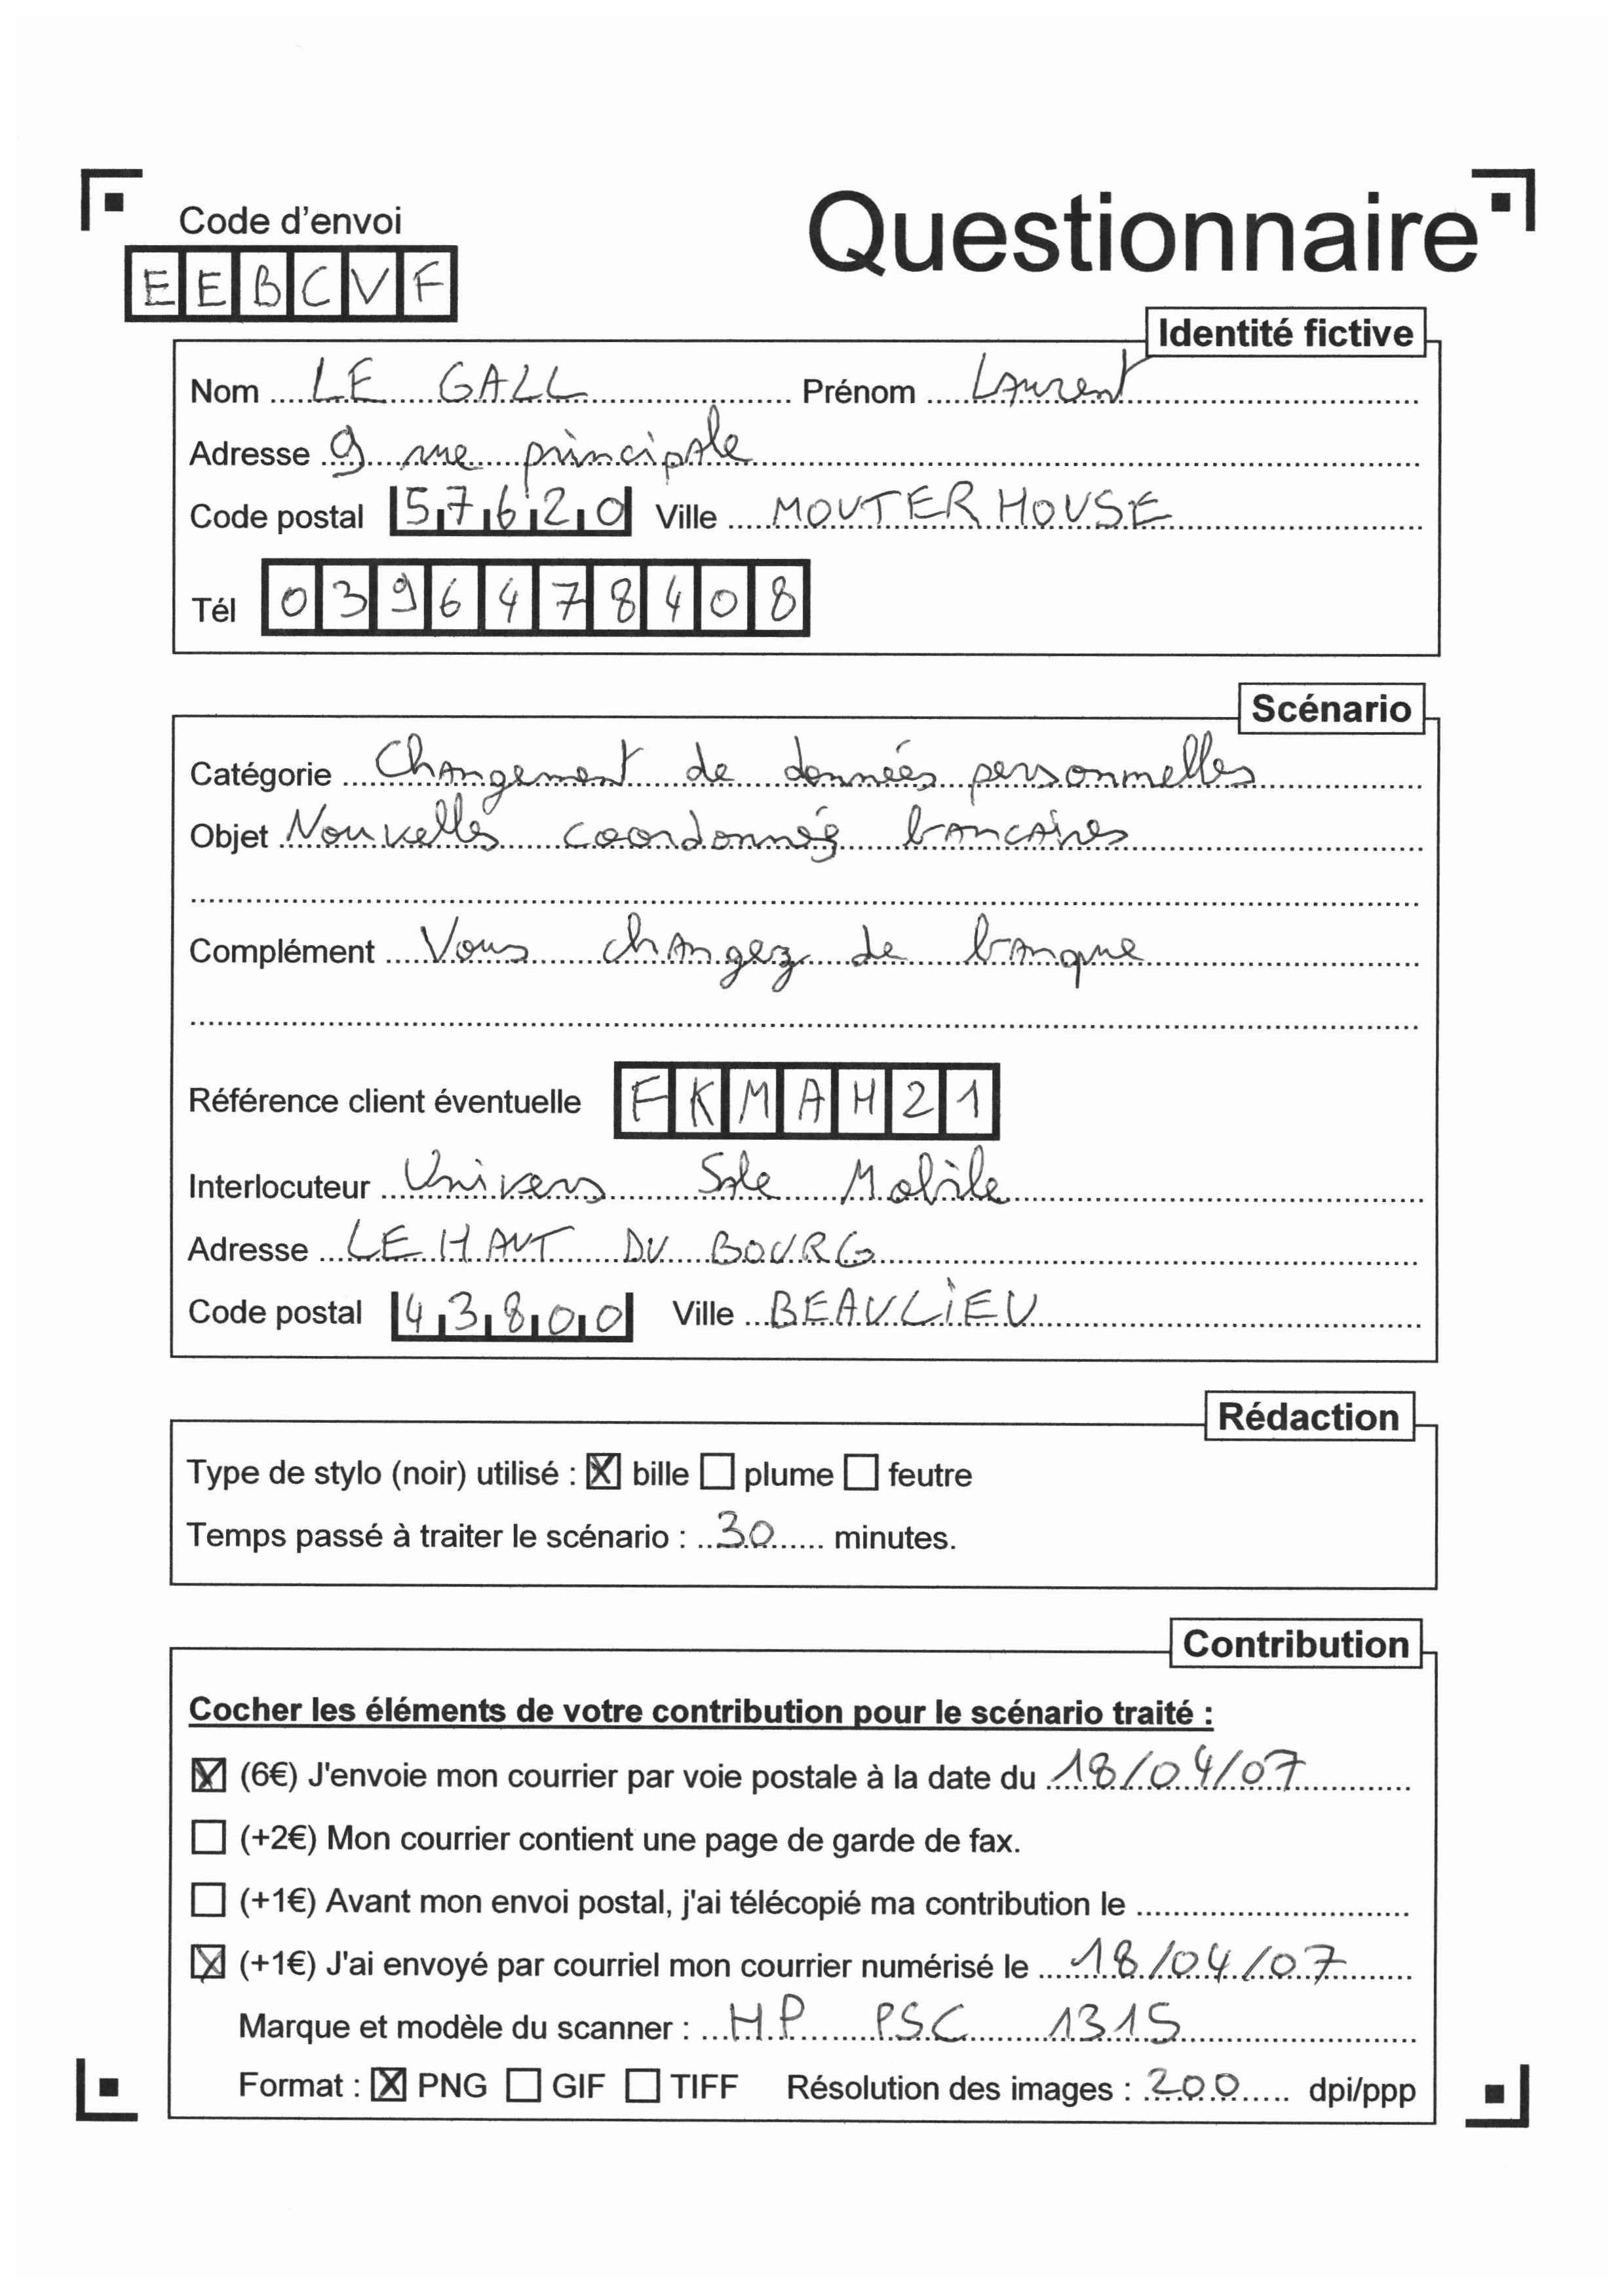 Code d'envoi
EEBCVF
Questionnaire
Identité fictive
Nom LE GALL Prénom Laurent
Adresse 9 rue principale
Code postal 57620 Ville MOUTERHOUSE
Tél 0396478408
Scénario
Catégorie Changement de données personnelles
Objet Nouvelles coordonnées bancaires
Complément Vous changez de banque
Référence client éventuelle FKMAH21
Interlocuteur Univers Sole Mobile
Adresse LE HAUT DU BOURG
Code postal 43800 Ville BEAULIEU
Rédaction
Type de stylo (noir) utilisé : ☒ bille ☐ plume ☐ feutre
Temps passé à traiter le scénario : 30 minutes.
Contribution
Cocher les éléments de votre contribution pour le scénario traité :
☒ (6€) J'envoie mon courrier par voie postale à la date du 18/04/07
☐ (+2€) Mon courrier contient une page de garde de fax.
☐ (+1€) Avant mon envoi postal, j'ai télécopié ma contribution le
☒ (+1€) J'ai envoyé par courriel mon courrier numérisé le 18/04/07
Marque et modèle du scanner : HP PSC 1315
Format : ☒ PNG ☐ GIF ☐ TIFF Résolution des images : 200 dpi/ppp